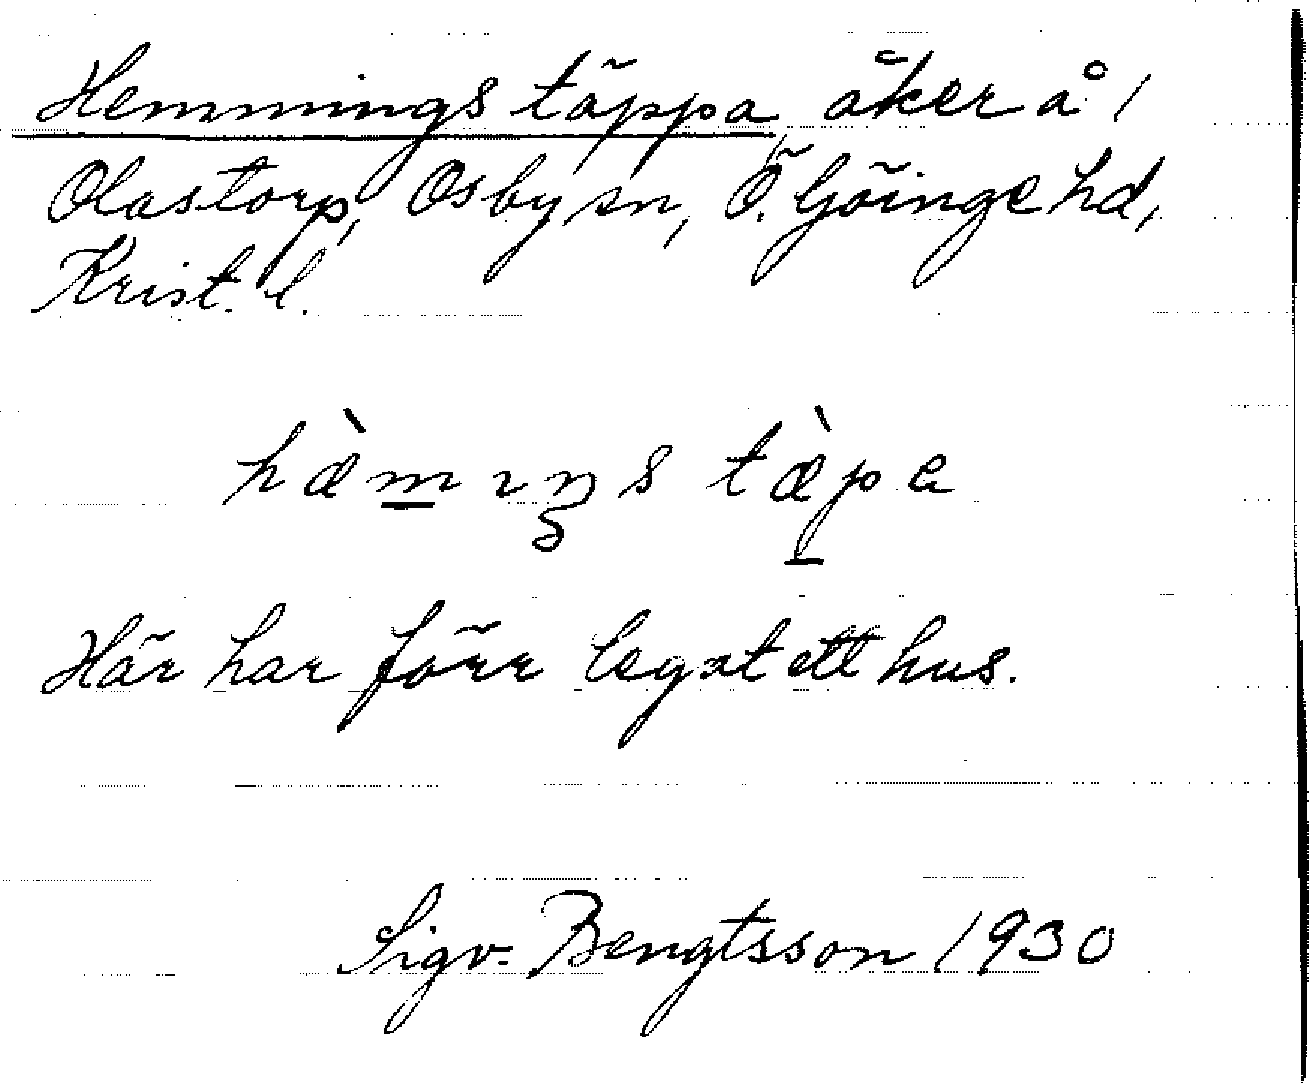 Hemmings täppa, åker å 1
Olastorp, Osby sn, Ö. Göinge hd,
Krist. l.
hæ̀m̲ıŋs tæ̀p̲a
Här har förr legat ett hus.
Sigv. Bengtsson 1930